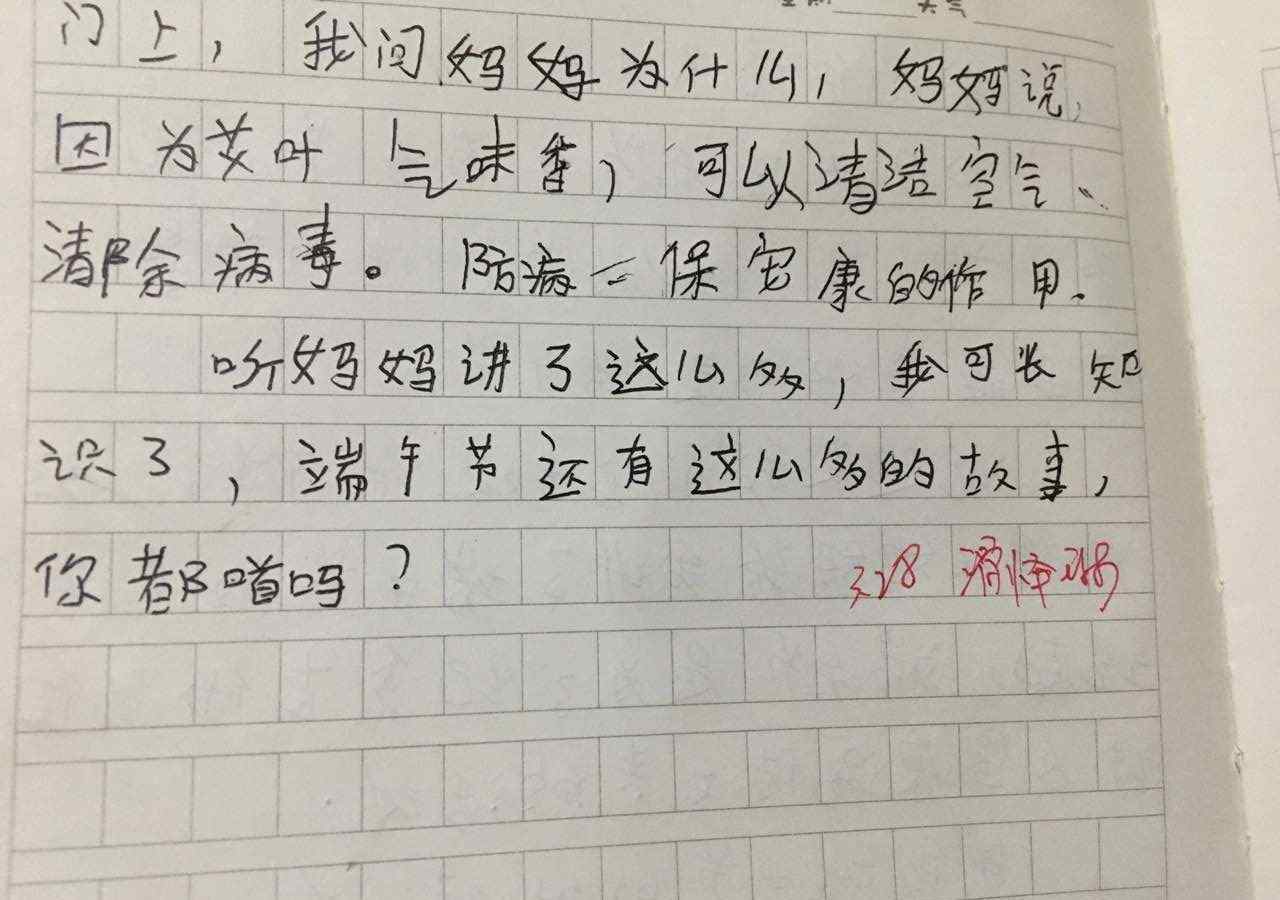 门上，我问妈妈为什么，妈妈说，
因为艾叶气味香，可以清洁空气、
清除病毒。防病保安康的作用.
听妈妈讲了这么多，我可长知
识了，端午节还有这么多的故事，
你都喑吗？